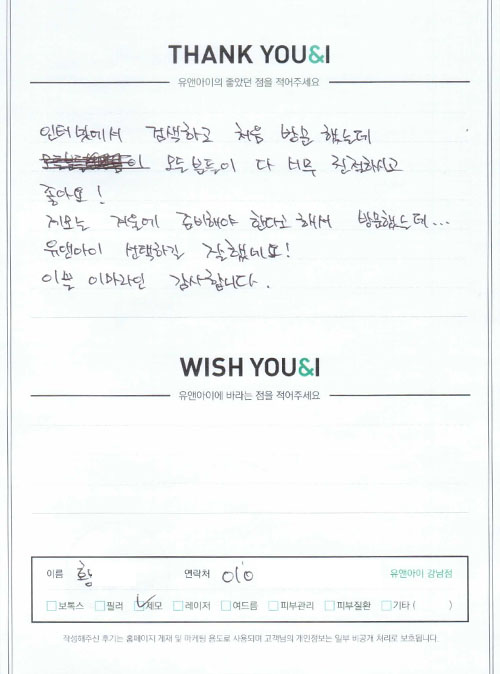 THANK YOU&I
유앤아이의 좋았던 점을 적어주세요
인터넷에서 검색하고 처음 방문 했는데
모든분들이 다 너무 친절하시고
좋아요!
제모는 겨울에 준비해야 한다고 해서 방문했는데...
유앤아이 선택하길 잘했네요!
이쁜 이마라인 감사합니다.
WISH YOU&I
유앤아이에 바라는 점을 적어주세요
이름 황 연락처 010 유앤아이 강남점
보톡스 필러 제모 레이저 여드름 피부관리 피부질환 기타 ( )
작성해주신 후기는 홈페이지 게재 및 마케팅 용도로 사용되며 고객님의 개인정보는 일부 비공개 처리로 보호됩니다.